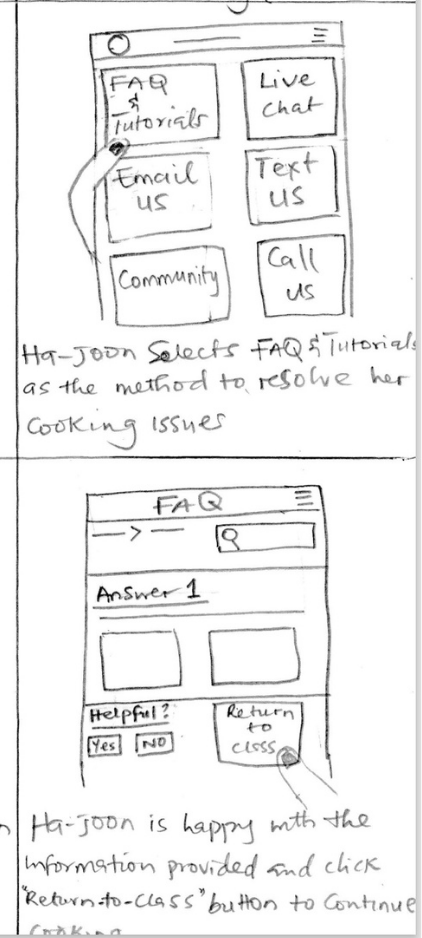 FAQ
&
Tutorials
Live
chat
Email
us
Text
us
Community
Call
us
Ha-Joon Selects FAQ & Tutorials
as the method to resolve her
Cooking Issues
FAQ
Answer 1
Helpful?
Yes
NO
Return
to
class
Ha-Joon is happy with the
information provided and click
"Return-to-Class" button to Continue
Cooking